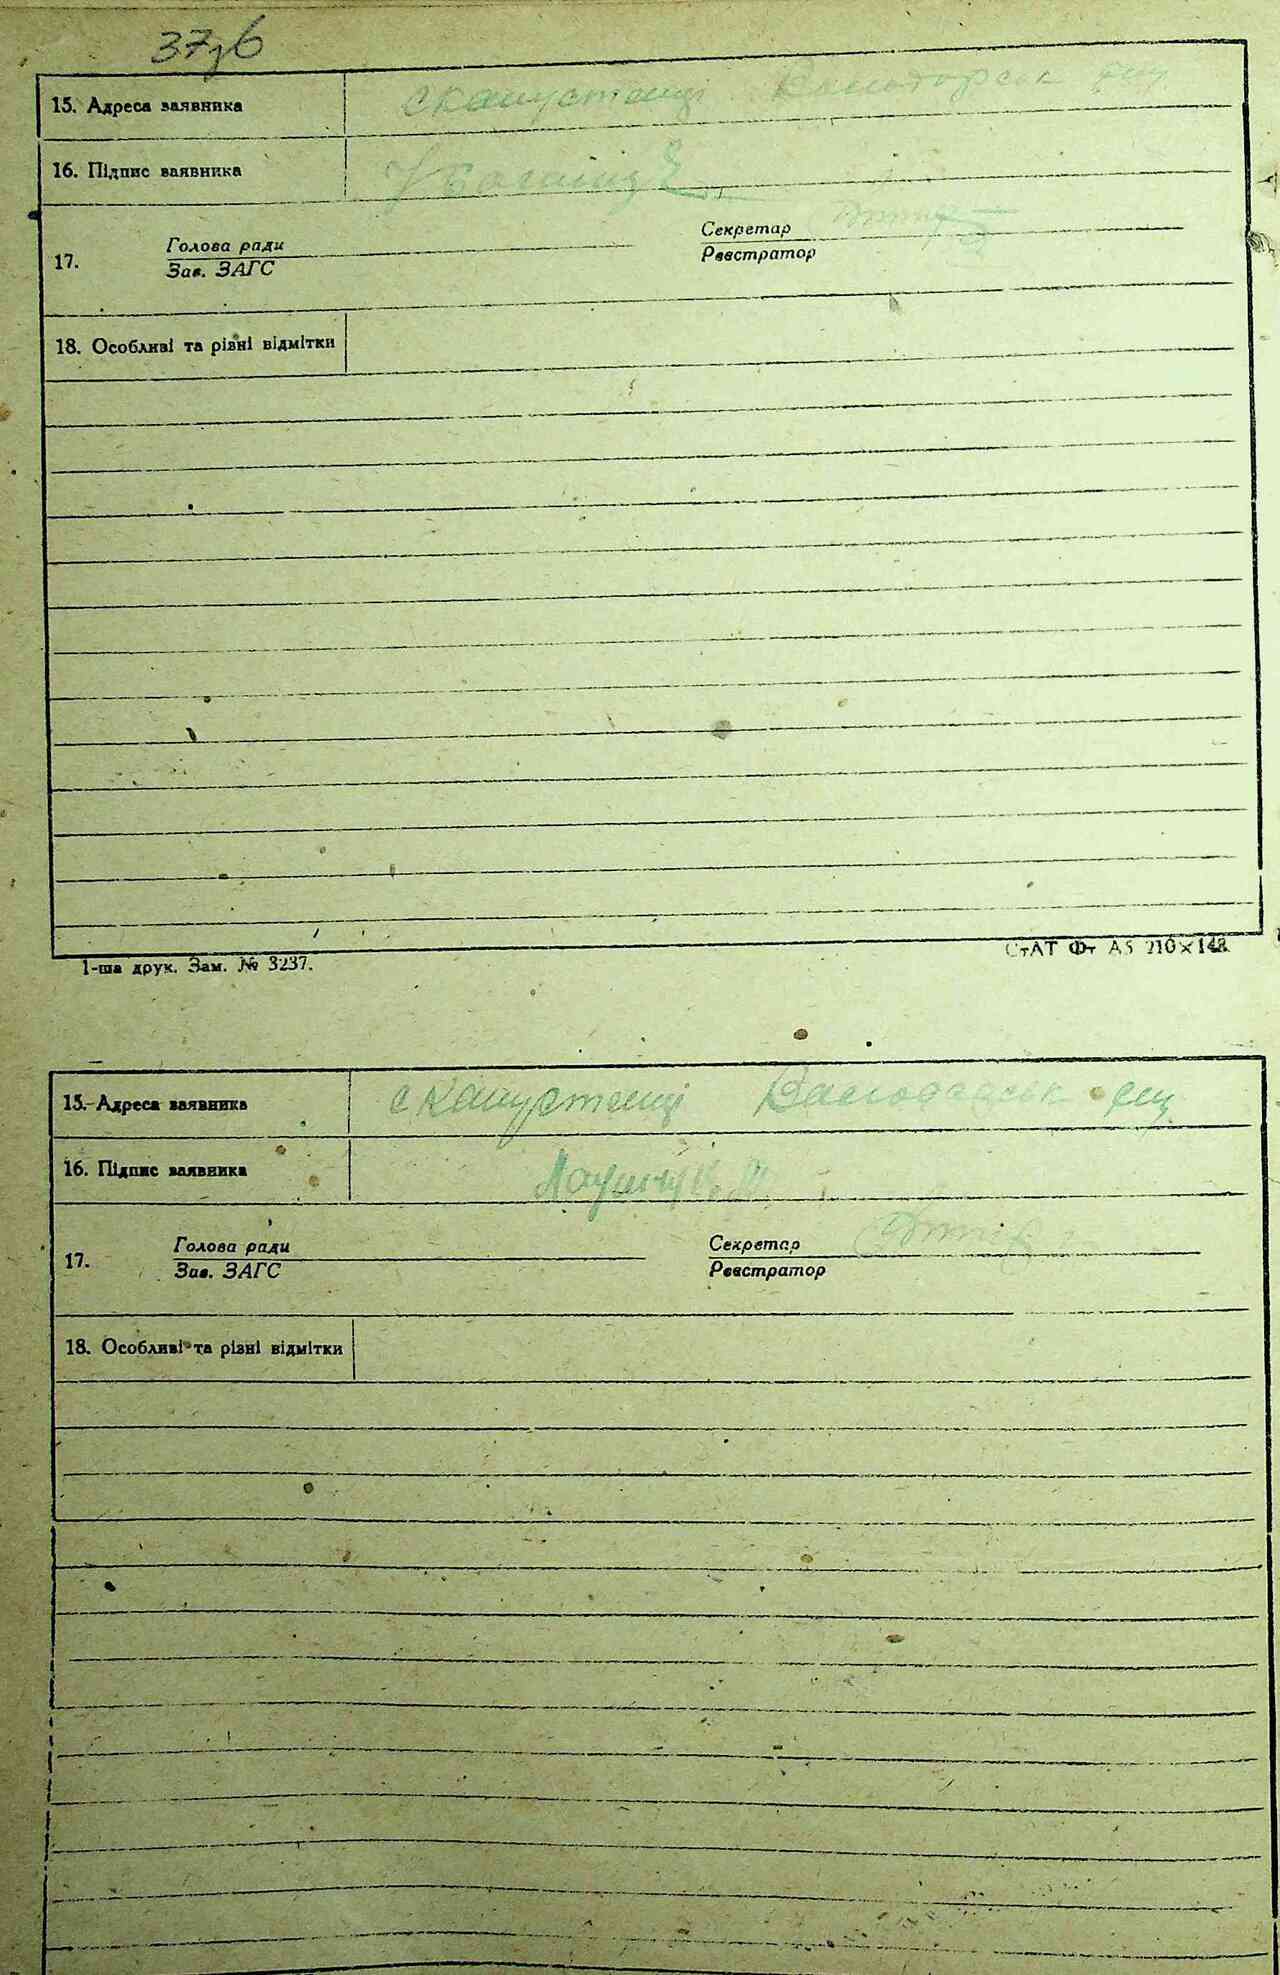 37зб
15. Адреса заявника с капустинці
16. Підпис заявника
17. Голова ради Секретар
Зав. ЗАГС Реєстратор
18. Особливі та різні відмітки
1-ша друк. Зам. № 3237. СтАТ Фт А5 210×148
15. Адреса заявника с капустинці
16. Підпис заявника
17. Голова ради Секретар
Зав. ЗАГС Реєстратор
18. Особливі та різні відмітки